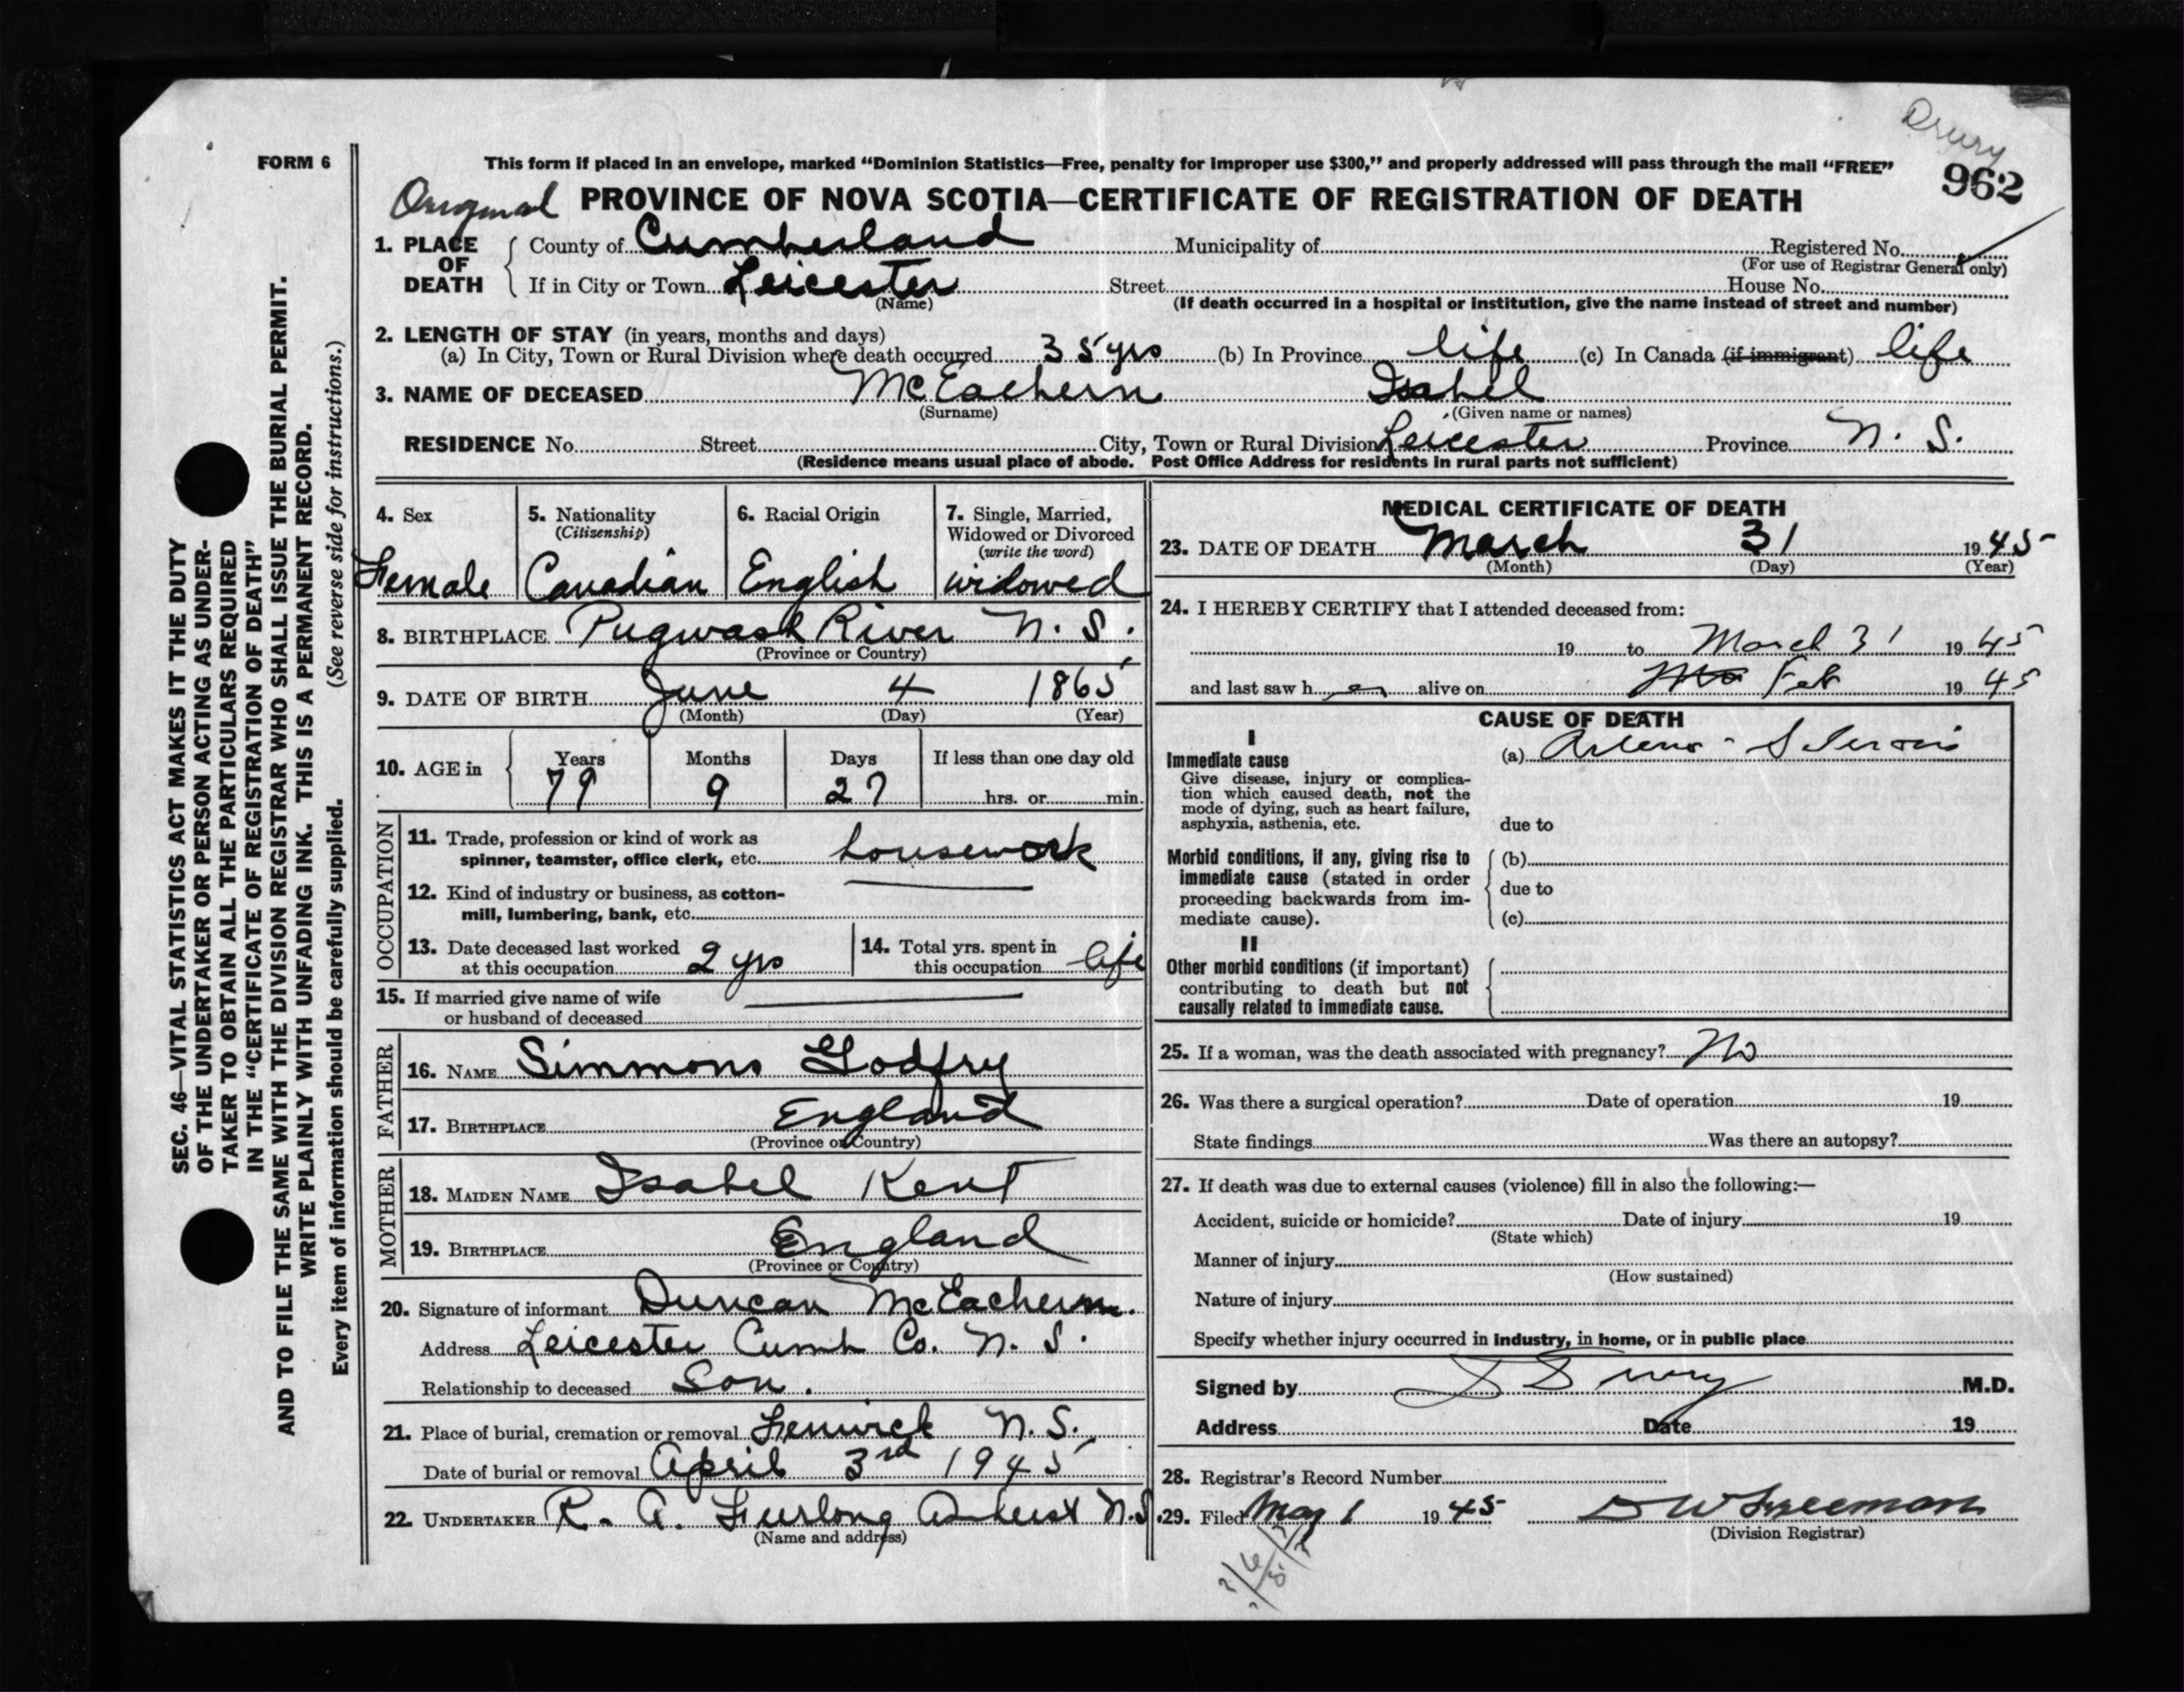 Drury
962
FORM 6
This form if placed in an envelope, marked “Dominion Statistics—Free, penalty for improper use $300,” and properly addressed will pass through the mail “FREE”
Original PROVINCE OF NOVA SCOTIA—CERTIFICATE OF REGISTRATION OF DEATH
1. PLACE OF DEATH
County of Cumberland Municipality of Registered No.
(For use of Registrar General only)
If in City or Town Leicester Street House No.
(Name) (If death occurred in a hospital or institution, give the name instead of street and number)
2. LENGTH OF STAY (in years, months and days)
(a) In City, Town or Rural Division where death occurred 35 yrs (b) In Province life (c) In Canada (if immigrant) life
3. NAME OF DECEASED McEachern Isabel
(Surname) (Given name or names)
RESIDENCE No. Street City, Town or Rural Division Leicester Province N. S.
(Residence means usual place of abode. Post Office Address for residents in rural parts not sufficient)
SEC. 46—VITAL STATISTICS ACT MAKES IT THE DUTY
OF THE UNDERTAKER OR PERSON ACTING AS UNDER-
TAKER TO OBTAIN ALL THE PARTICULARS REQUIRED
IN THE “CERTIFICATE OF REGISTRATION OF DEATH”
AND TO FILE THE SAME WITH THE DIVISION REGISTRAR WHO SHALL ISSUE THE BURIAL PERMIT.
WRITE PLAINLY WITH UNFADING INK. THIS IS A PERMANENT RECORD.
Every item of information should be carefully supplied. (See reverse side for instructions.)
4. Sex
Female
5. Nationality
(Citizenship)
Canadian
6. Racial Origin
English
7. Single, Married,
Widowed or Divorced
(write the word)
widowed
8. BIRTHPLACE Pugwash River N. S.
(Province or Country)
9. DATE OF BIRTH June 4 1865
(Month) (Day) (Year)
10. AGE in
Years Months Days If less than one day old
79 9 27 hrs. or min.
OCCUPATION
11. Trade, profession or kind of work as
spinner, teamster, office clerk, etc. housework
12. Kind of industry or business, as cotton-
mill, lumbering, bank, etc.
13. Date deceased last worked
at this occupation 2 yrs
14. Total yrs. spent in
this occupation life
15. If married give name of wife
or husband of deceased
FATHER
16. NAME Simmons Godfry
17. BIRTHPLACE England
(Province or Country)
MOTHER
18. MAIDEN NAME Isabel Kent
19. BIRTHPLACE England
(Province or Country)
20. Signature of informant Duncan McEachern.
Address Leicester Cumb Co. N. S.
Relationship to deceased Son.
21. Place of burial, cremation or removal Fenwick N. S.
Date of burial or removal April 3rd 1945
22. UNDERTAKER R. A. Furlong Amherst N.S.
(Name and address)
MEDICAL CERTIFICATE OF DEATH
23. DATE OF DEATH March 31 1945
(Month) (Day) (Year)
24. I HEREBY CERTIFY that I attended deceased from:
19 to March 31 1945
and last saw her alive on Feb 1945
CAUSE OF DEATH
I
Immediate cause
Give disease, injury or complica-
tion which caused death, not the
mode of dying, such as heart failure,
asphyxia, asthenia, etc.
(a) Arterio-Sclerosis
due to
Morbid conditions, if any, giving rise to
immediate cause (stated in order
proceeding backwards from im-
mediate cause).
(b)
due to
(c)
II
Other morbid conditions (if important)
contributing to death but not
causally related to immediate cause.
25. If a woman, was the death associated with pregnancy? No
26. Was there a surgical operation? Date of operation 19
State findings Was there an autopsy?
27. If death was due to external causes (violence) fill in also the following:—
Accident, suicide or homicide? Date of injury 19
(State which)
Manner of injury
(How sustained)
Nature of injury
Specify whether injury occurred in industry, in home, or in public place
Signed by D Drury M.D.
Address Date 19
28. Registrar's Record Number
29. Filed May 1 1945 D W Freeman
(Division Registrar)